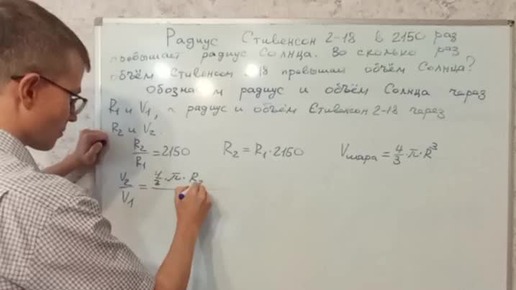 Радиус Стивенсон 2-18 в 2150 раз
превышает радиус Солнца. Во сколько раз
объём Стивенсон 2-18 превышает объём Солнца?
Обозначим радиус и объём Солнца через
R₁ и V₁, а радиус и объём Стивенсон 2-18 через
R₂ и V₂.
R₂/R₁ = 2150 R₂ = R₁ · 2150 Vшара = 4/3 · π · R³
V₂/V₁ = 4/3 · π · R₂